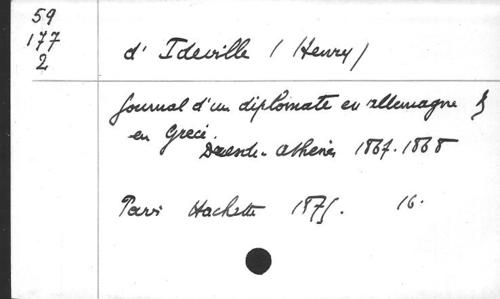 59
177
2
d'Ideville (Henry)
Journal d'un diplomate en allemagne &
en Grèce.
Dresde - Athènes 1867-1868
Paris Hachette 1875. 16.